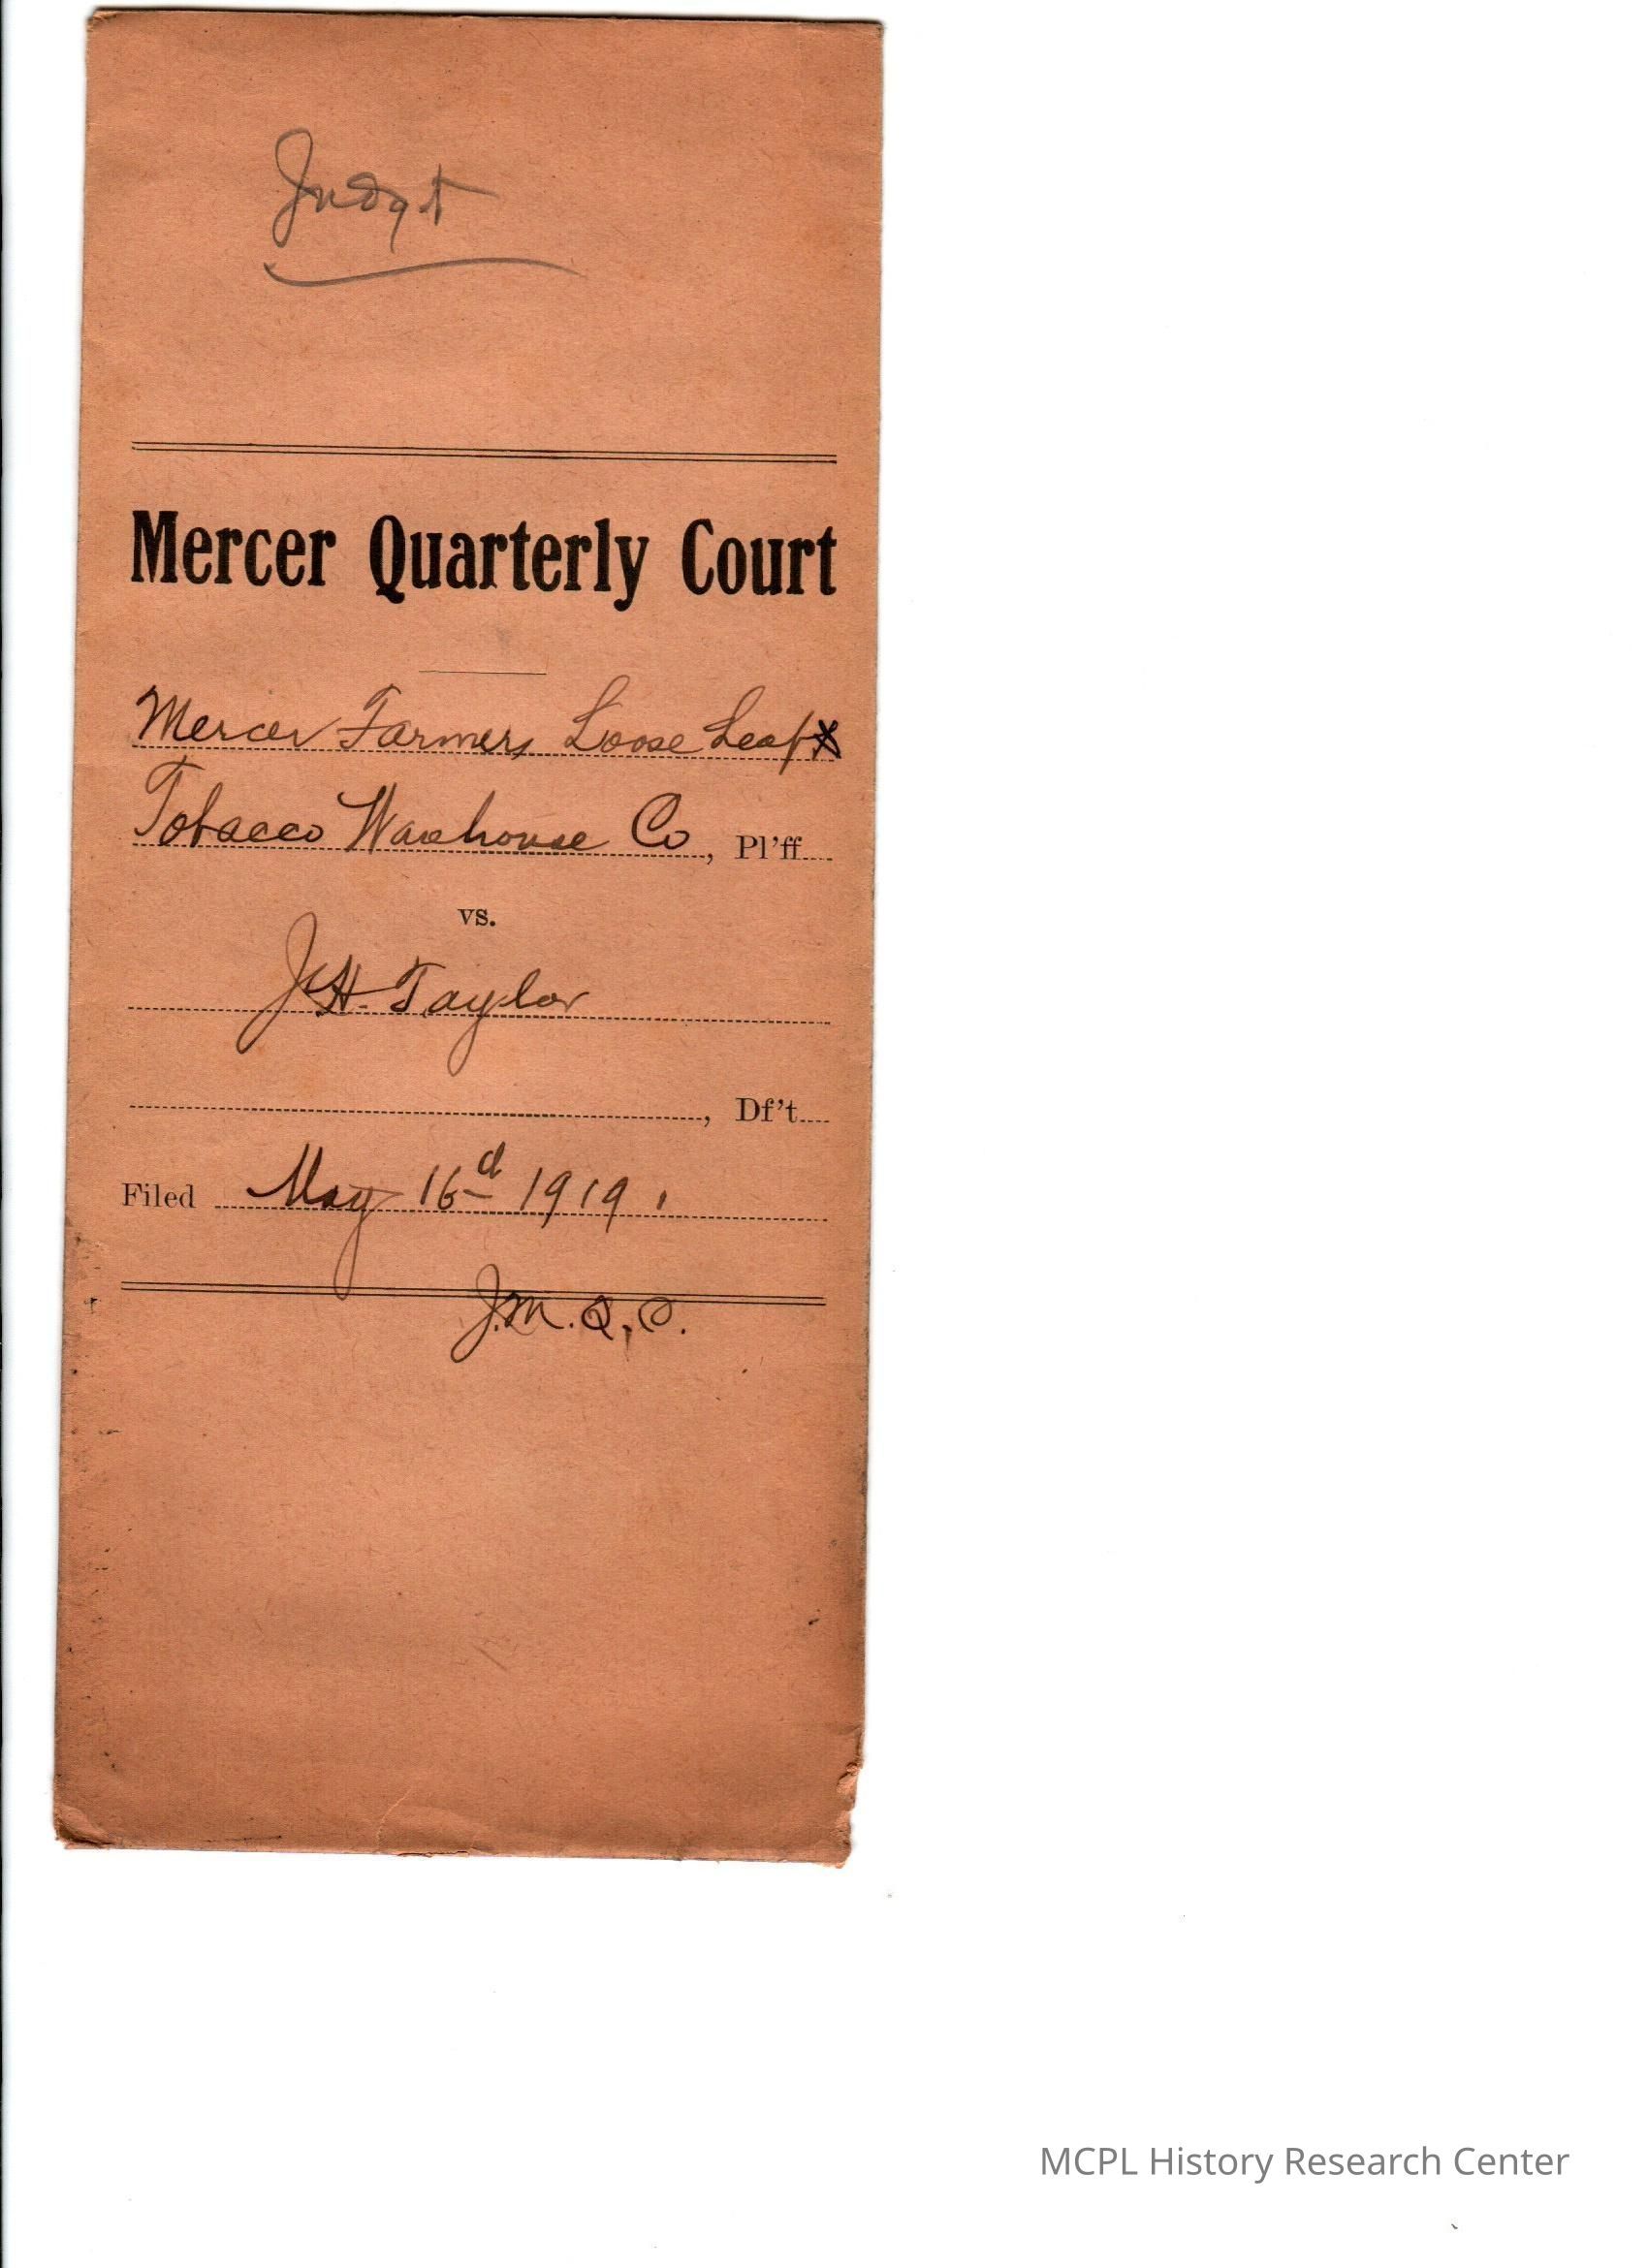 Judgt
Mercer Quarterly Court
Mercer Farmers Loose Leaf
Tobacco Warehouse Co, Pl'ff
vs.
J H. Taylor
, Df't
Filed May 16d 1919.
J.M.Q.C.
MCPL History Research Center